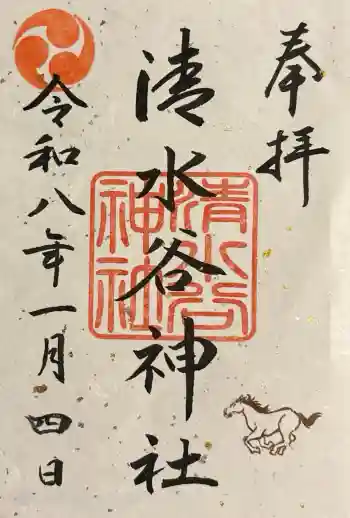 奉拝
清水谷神社
清水谷神社
令和八年一月四日